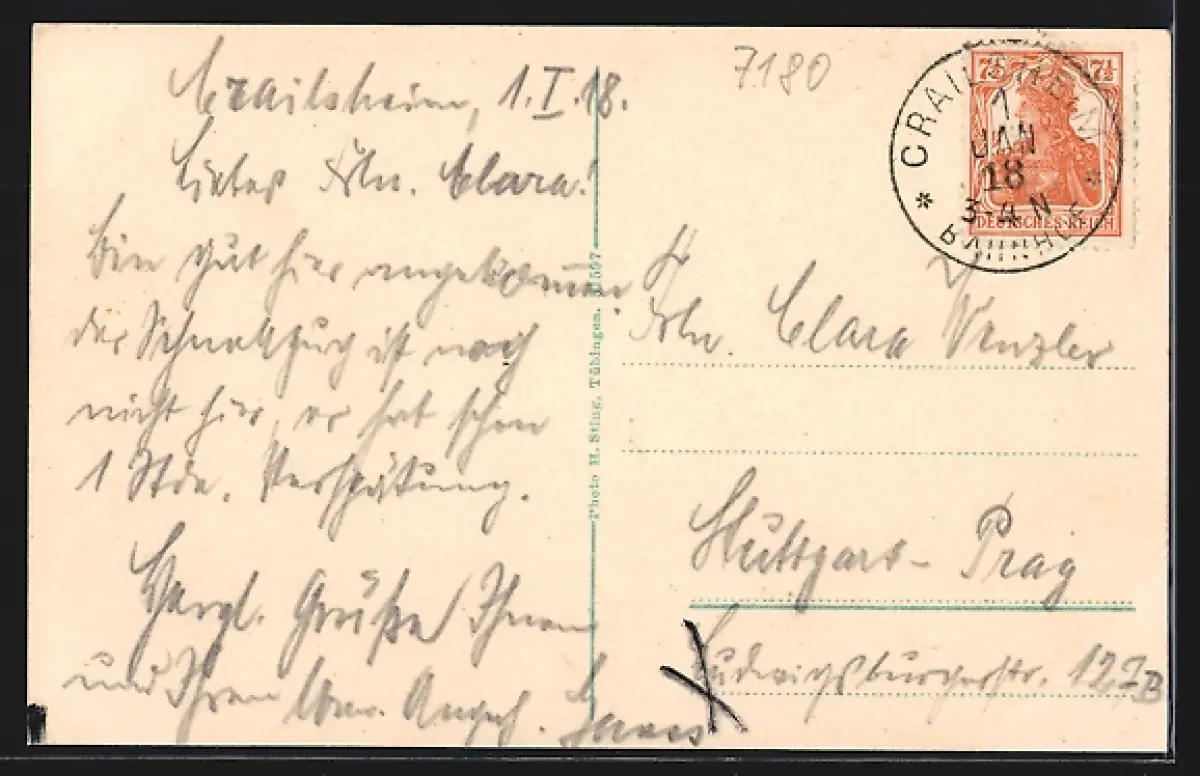 Crailsheim, 1.I.18.
Liebes Frln. Clara!
Bin gut hier angekommen
der Schnellzug ist noch
nicht hier, er hat schon
1 Stde. Verspätung.
Herzl. Grüße Ihnen
und Ihren Angeh.
Photo H. Sting, Tübingen.
7180
CRAILSHEIM
1
JAN
18
3-4 N
BAHNHOF
7½ 7½
DEUTSCHES REICH
Frln. Clara Wenzler
Stuttgart-Prag
Ludwigsburgerstr. 127B